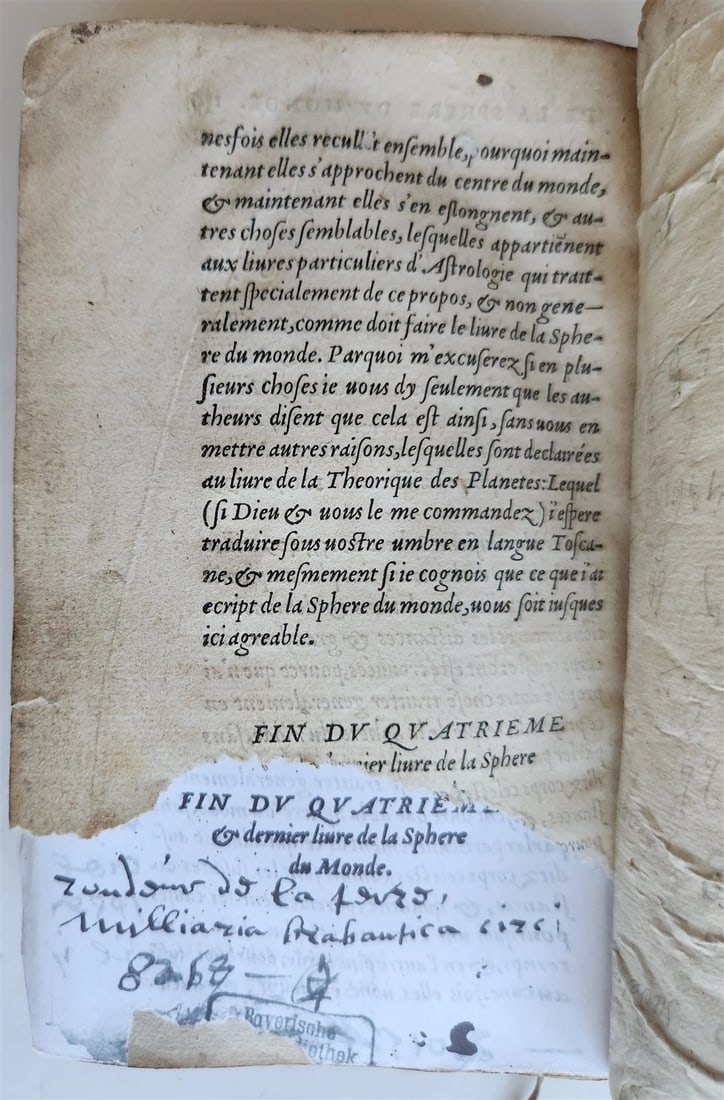 nesfois elles recull t ensemble, pourquoi main-
tenant elles s'approchent du centre du monde,
& maintenant elles s'en eslongnent, & au-
tres choses semblables, lesquelles appartiẽnent
aux liures particuliers d'Astrologie qui trait-
tent specialement de ce propos, & non gene-
ralement, comme doit faire le liure de la Sphe-
re du monde. Parquoi m'excuserez si en plu-
sieurs choses ie uous dy seulement que les au-
theurs disent que cela est ainsi, sans uous en
mettre autres raisons, lesquelles sont declairées
au liure de la Theorique des Planetes: Lequel
(si Dieu & uous le me commandez) i'espere
traduire sous uostre umbre en langue Tosca-
ne, & mesmement si ie cognois que ce que i'ai
ecript de la Sphere du monde, uous soit iusques
ici agreable.
FIN DV QVATRIEME
dernier liure de la Sphere
FIN DV QVATRIEME
& dernier liure de la Sphere
du Monde.
rondeur de la terre,
Milliaria brabantica
Bayerische